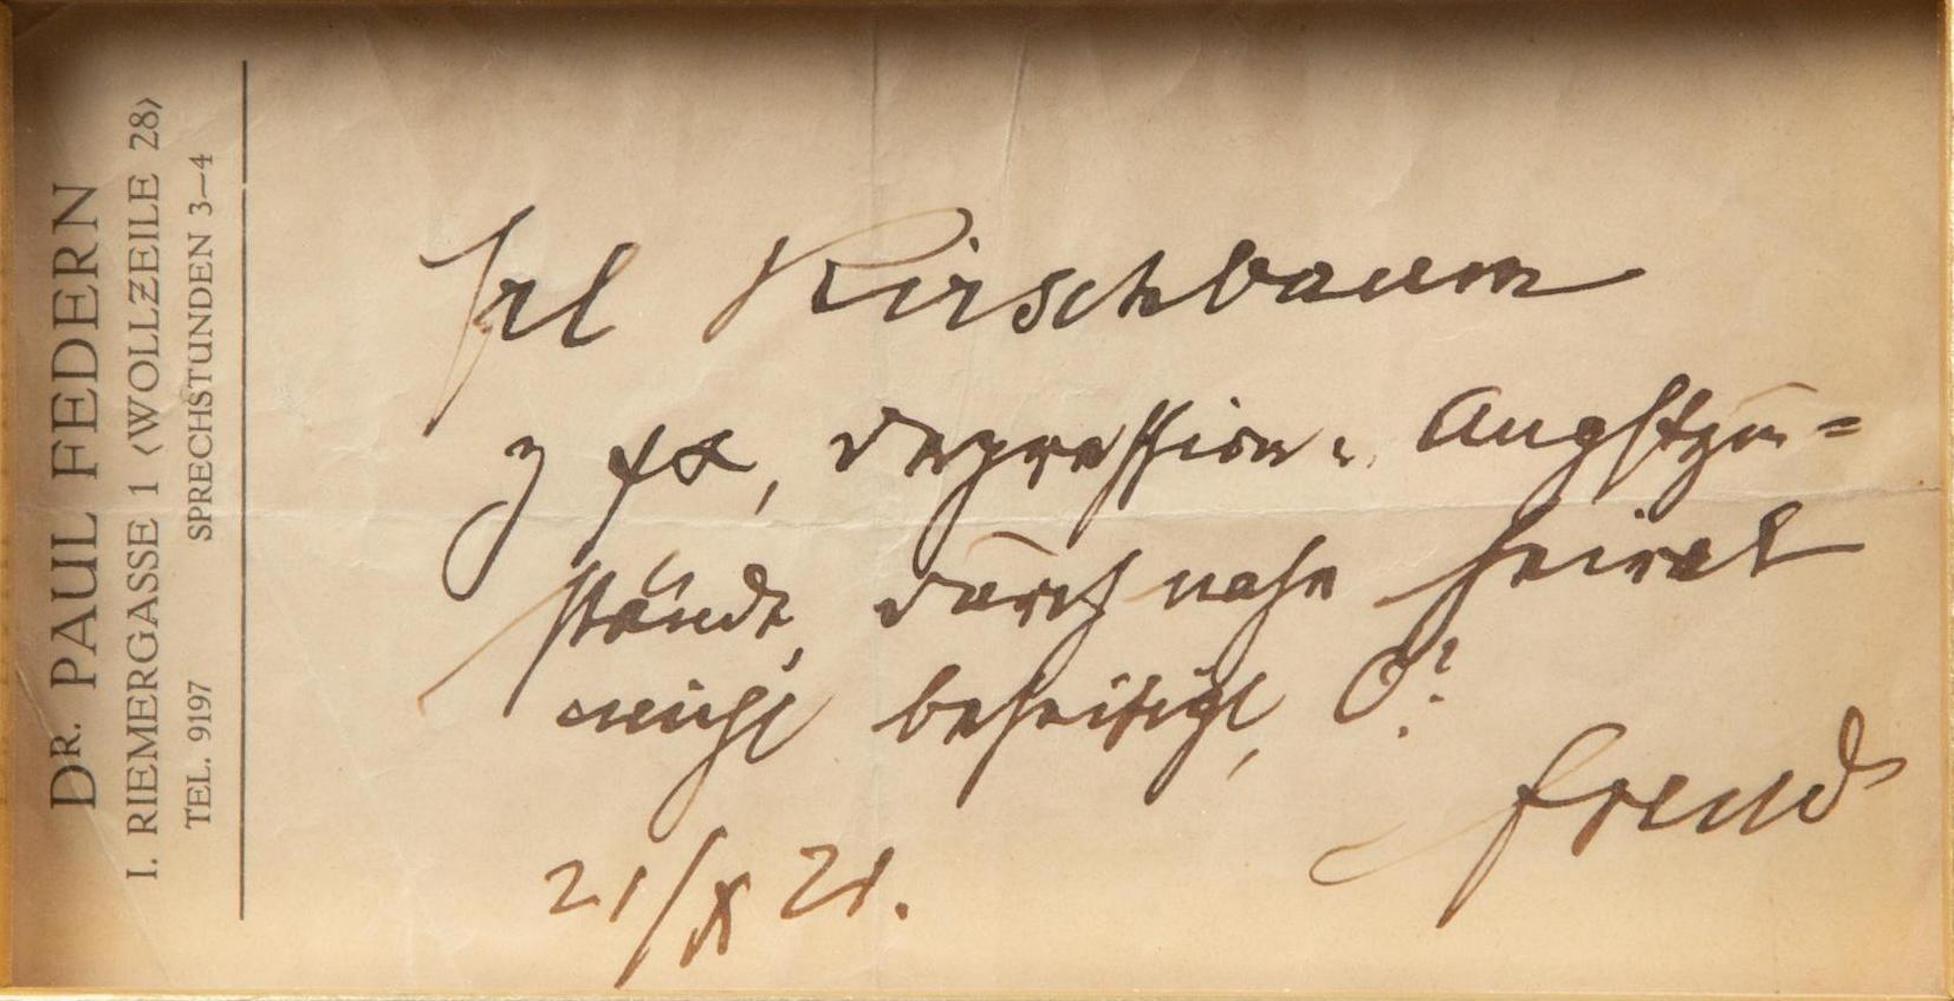 DR. PAUL FEDERN
I. RIEMERGASSE 1 <WOLLZEILE 28>
TEL. 9197 SPRECHSTUNDEN 3—4
Frl Kirschbaum
Depression u. Angstzu=
stände, durch nahe Heirat
nicht beseitigt, ?
Freud
21/X 21.